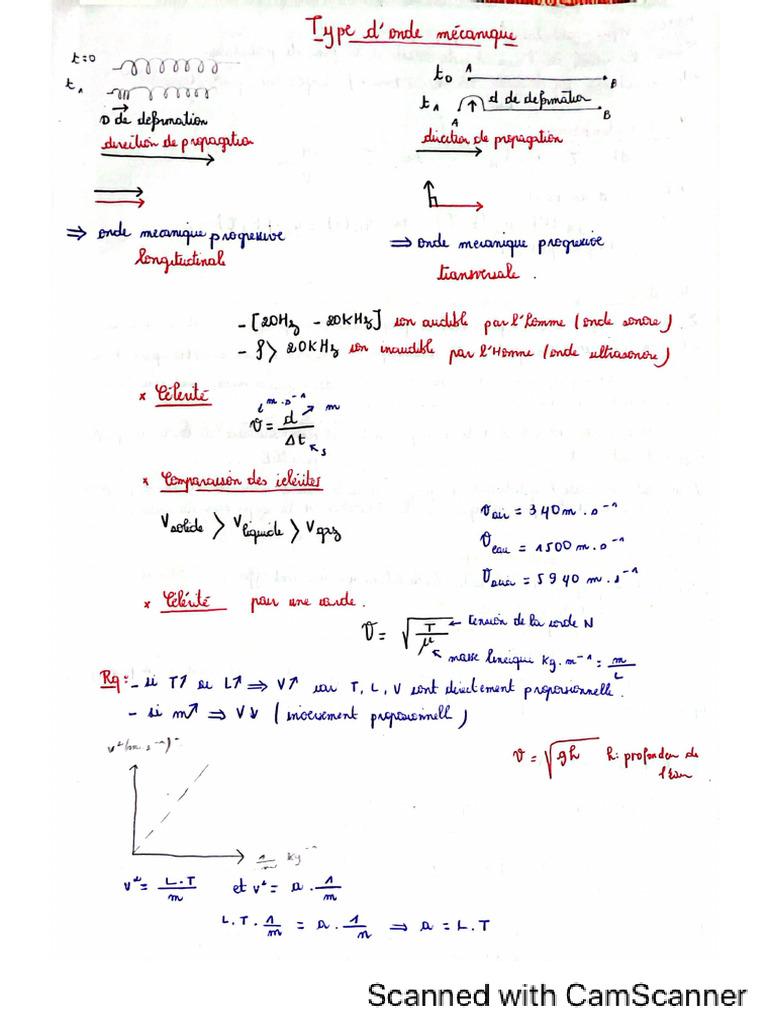 Type d'onde mécanique
t=0
t₁
D de deformation
direction de propagation
⇒ onde mecanique progressive
longitudinal
t₀ A B
t₁ A d de deformation B
direction de propagation
⇒ onde mecanique progressive
transversale.
- [20Hz - 20KHz] son audible par l'homme (onde sonore)
- f > 20KHz son inaudible par l'Homme (onde ultrasonore)
x Célérité
v = d/Δt
m.s⁻¹ m s
x Comparaison des célérites
V solide > V liquide > V gaz
v air = 340 m.s⁻¹
v eau = 1500 m.s⁻¹
v acier = 5940 m.s⁻¹
x Célérité pour une corde.
v = √(T/μ) ← tension de la corde N
masse lineique Kg.m⁻¹ = m/L
Rq: - si T↑ ou L↑ ⇒ V↑ car T, L, V sont directement proporsionnell.
- si m↑ ⇒ V↓ (inversement proporsionnell)
v²(m.s⁻¹)²
v = √gh h: profondeur de
l'eau
1/m Kg⁻¹
v² = L.T/m et v² = a.1/m
L.T.1/m = a.1/m ⇒ a = L.T
Scanned with CamScanner